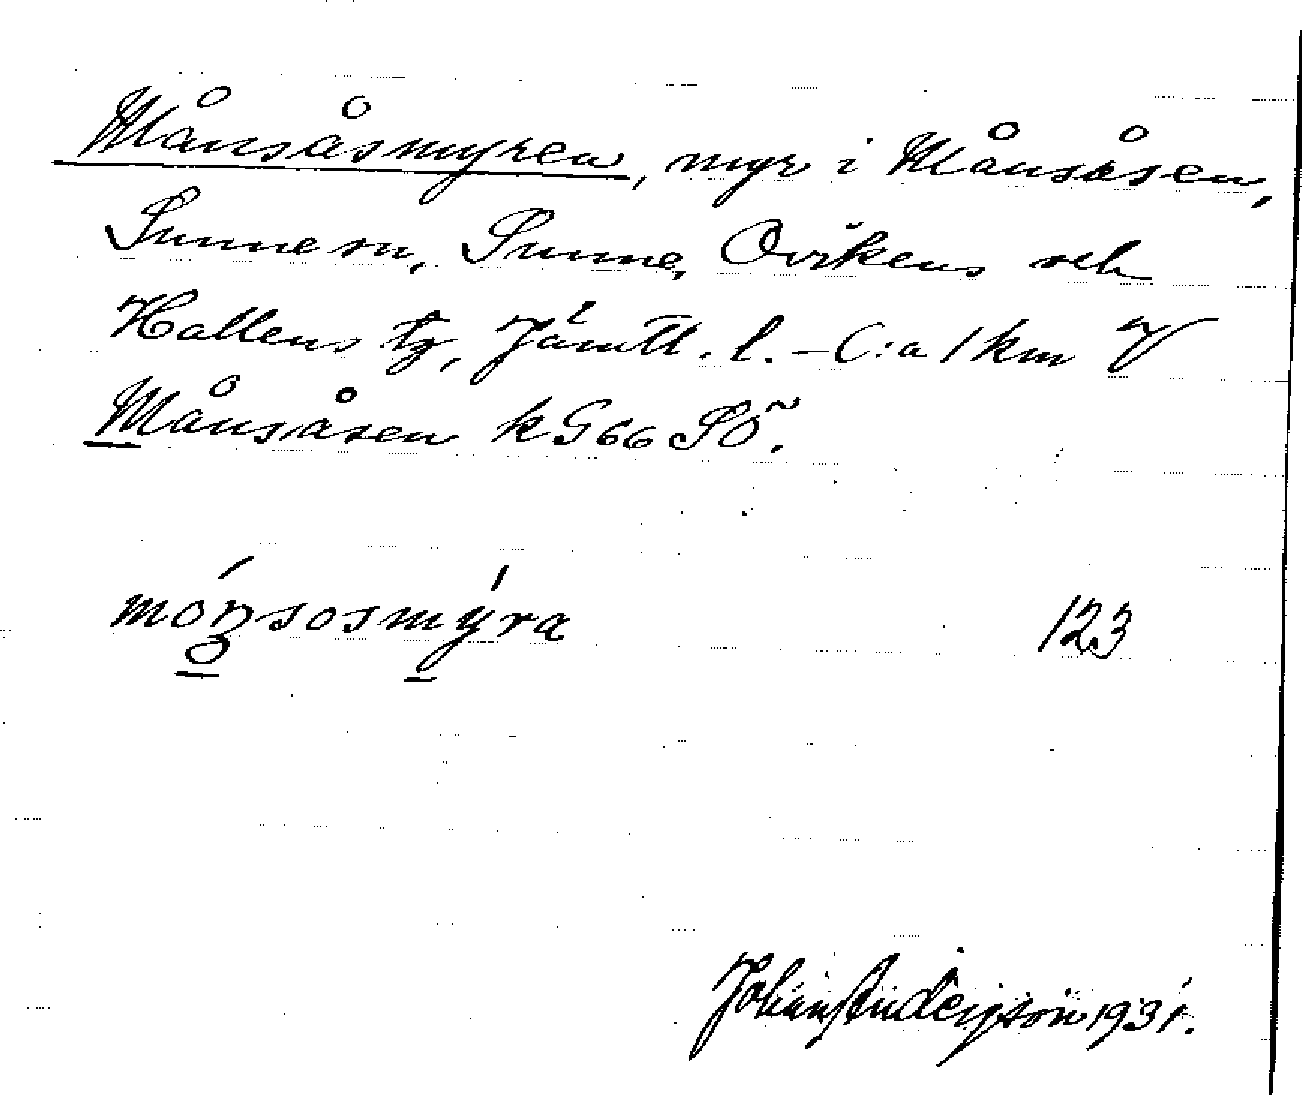 Månsåsmyren, myr i Månsåsen,
Sunne sn, Sunne, Ovikens och
Hallens tg, Jämtl. l. – C:a 1 km V
Månsåsen k G66 SÖ.
123
Johan Anderson 1931.